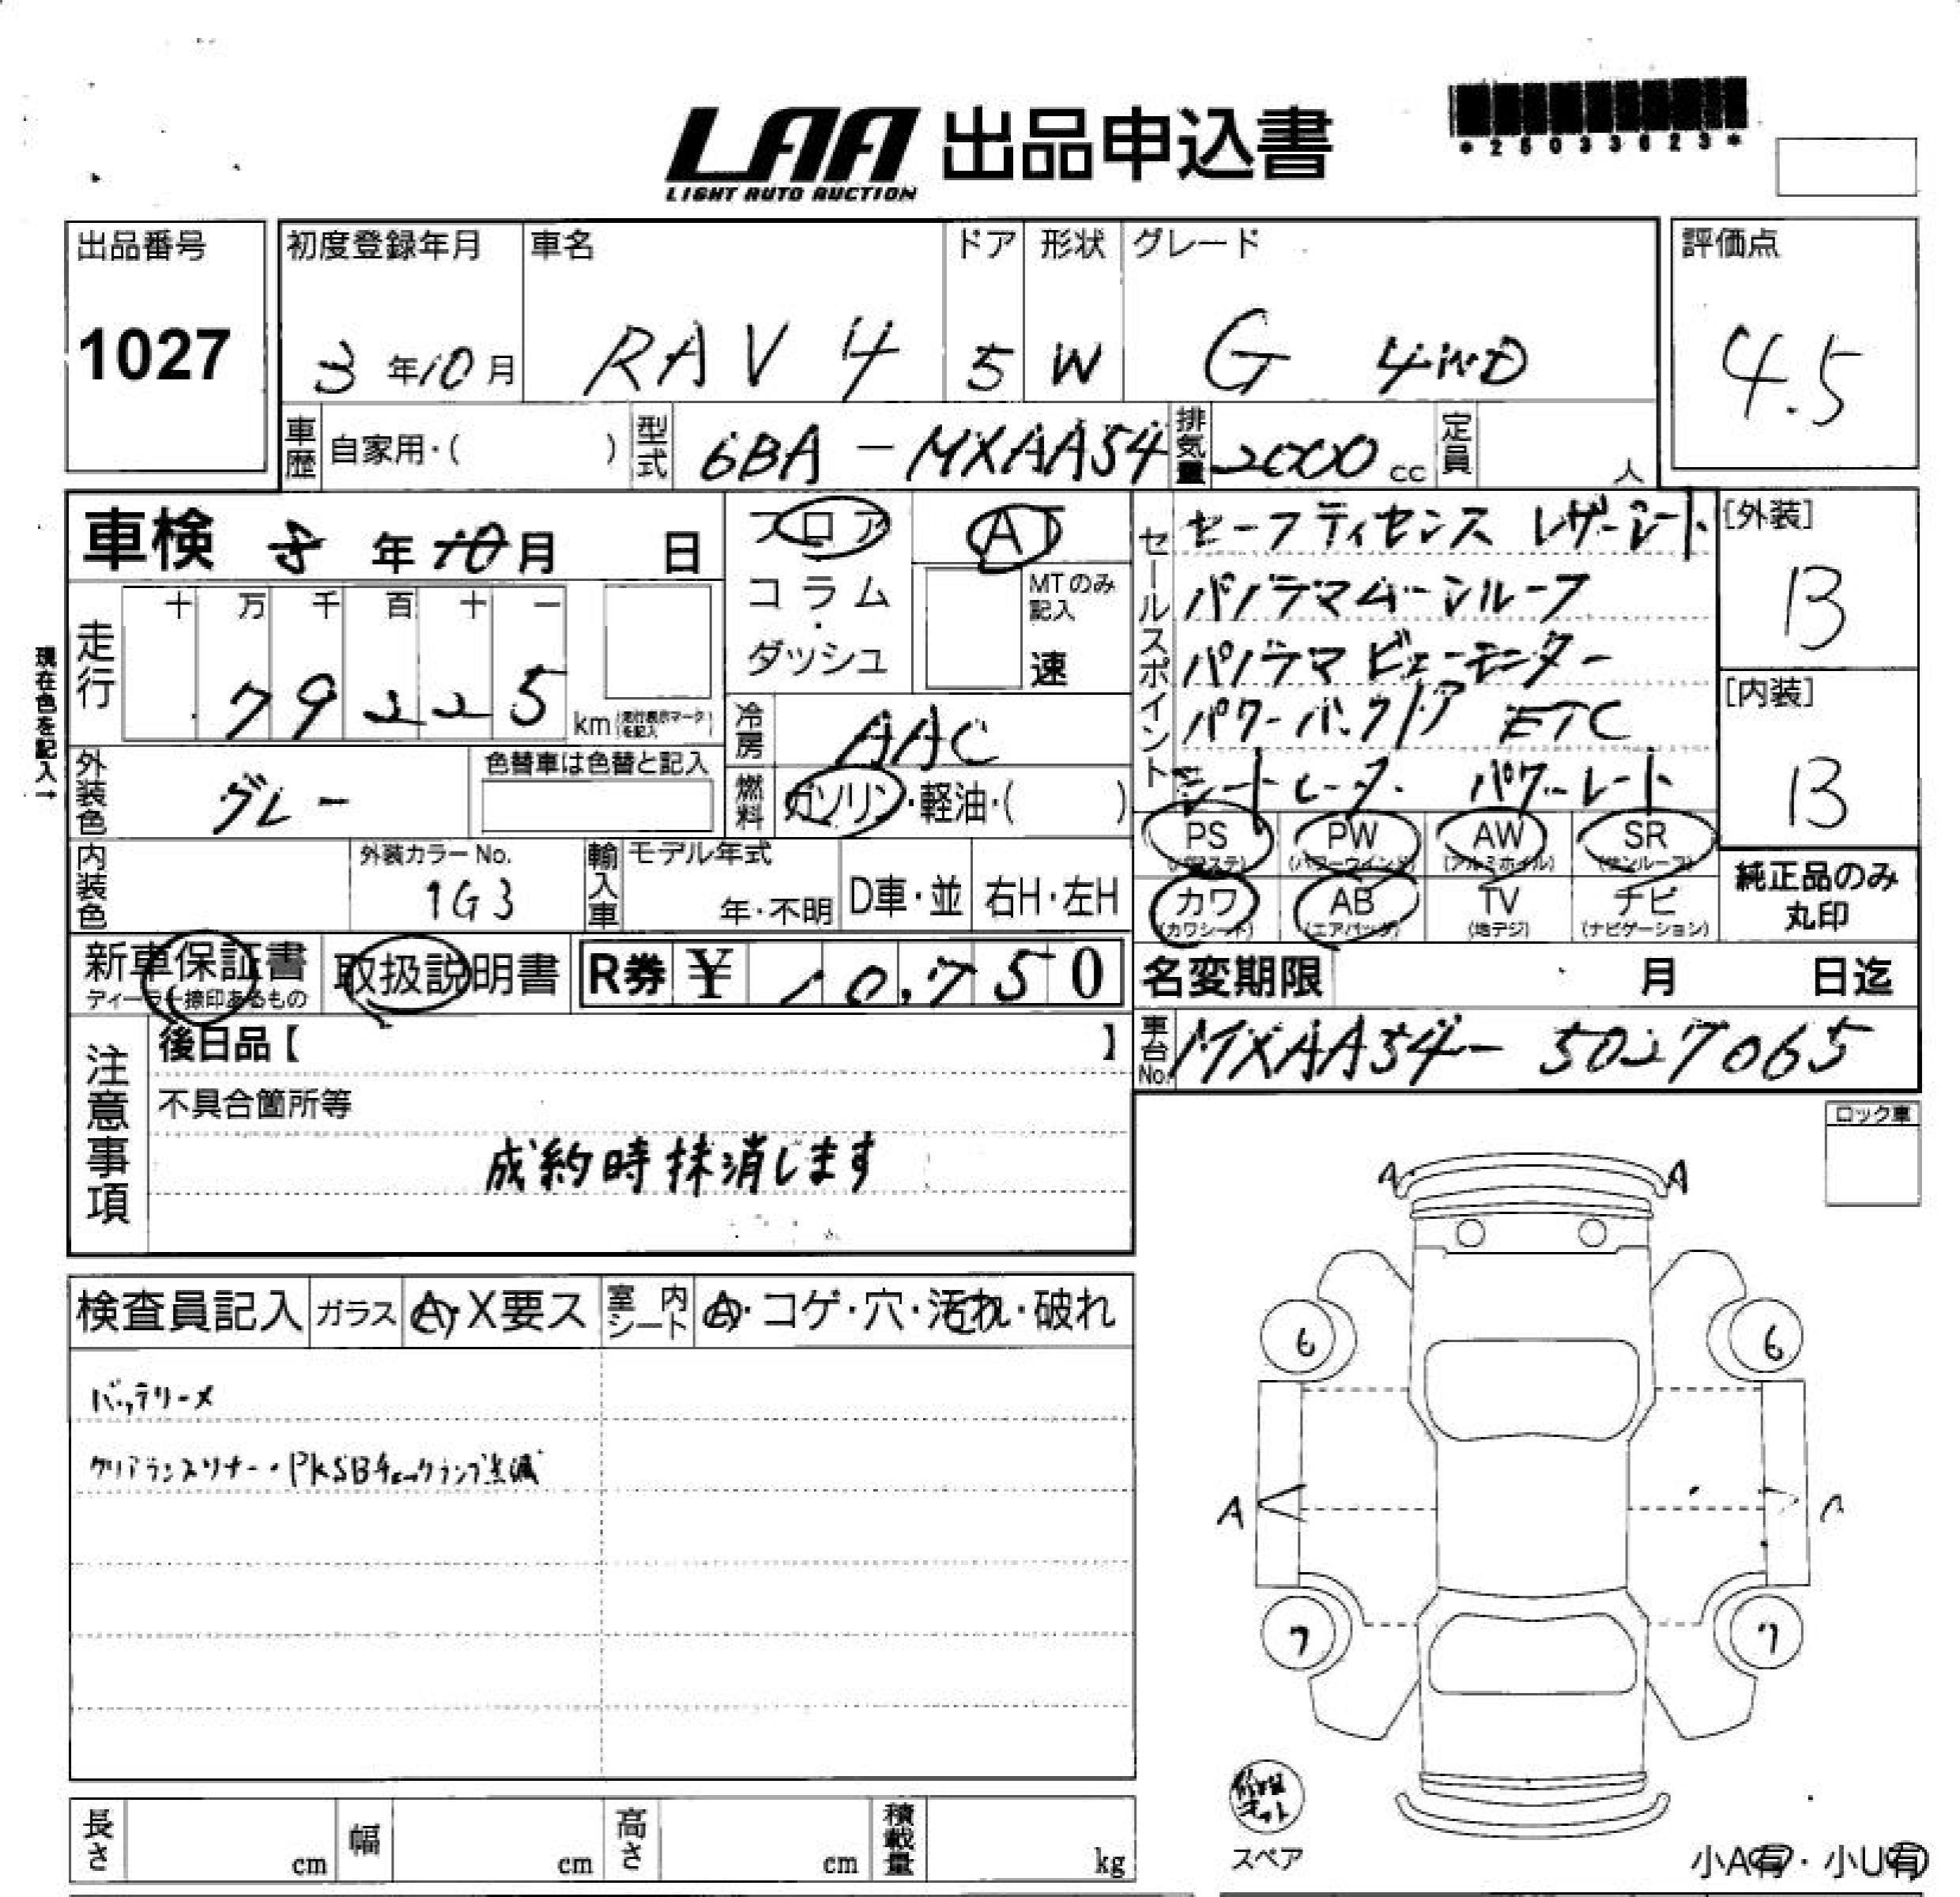 LAA 出品申込書
LIGHT AUTO AUCTION
*25033623*
出品番号
1027
初度登録年月
3年10月
車名
RAV4
ドア
5
形状
W
グレード
G 4WD
評価点
4.5
車歴
自家用・( )
型式
6BA-MXAA54
排気量
2000cc
定員
人
車検 8年10月 日
フロア
コラム・
ダッシュ
AT
MTのみ
記入
速
現在色を記入→
走行
十 万 千 百 十 一
79225 km
(走行表示マークを記入)
冷房
AAC
外装色
グレー
色替車は色替と記入
燃料
ガソリン・軽油・( )
内装色
外装カラーNo.
1G3
輸入車
モデル年式
年・不明
D車・並
右H・左H
新車保証書
ディーラー捺印あるもの
取扱説明書
R券 ¥ 10,750
セールスポイント
セーフティセンス レザーシート
パノラマムーンルーフ
パノラマビューモニター
パワーバックドア ETC
シートヒーター パワーシート
[外装]
B
[内装]
B
PS
(パワステ)
PW
(パワーウインド)
AW
(アルミホイル)
SR
(サンルーフ)
カワ
(カワシート)
AB
(エアバッグ)
TV
(地デジ)
ナビ
(ナビゲーション)
純正品のみ
丸印
名変期限 月 日迄
車台No.
MXAA54-5027065
注意事項
後日品【 】
不具合箇所等
成約時抹消します
ロック車
検査員記入
ガラス
A・X要ス
室内シート
A・コゲ・穴・汚れ・破れ
バッテリーメ
クリアランスソナー・PKSBチェックランプ点滅
A A
6 6
A
7 7
修理キット
スペア
小A有・小U有
長さ cm
幅 cm
高さ cm
積載量 kg